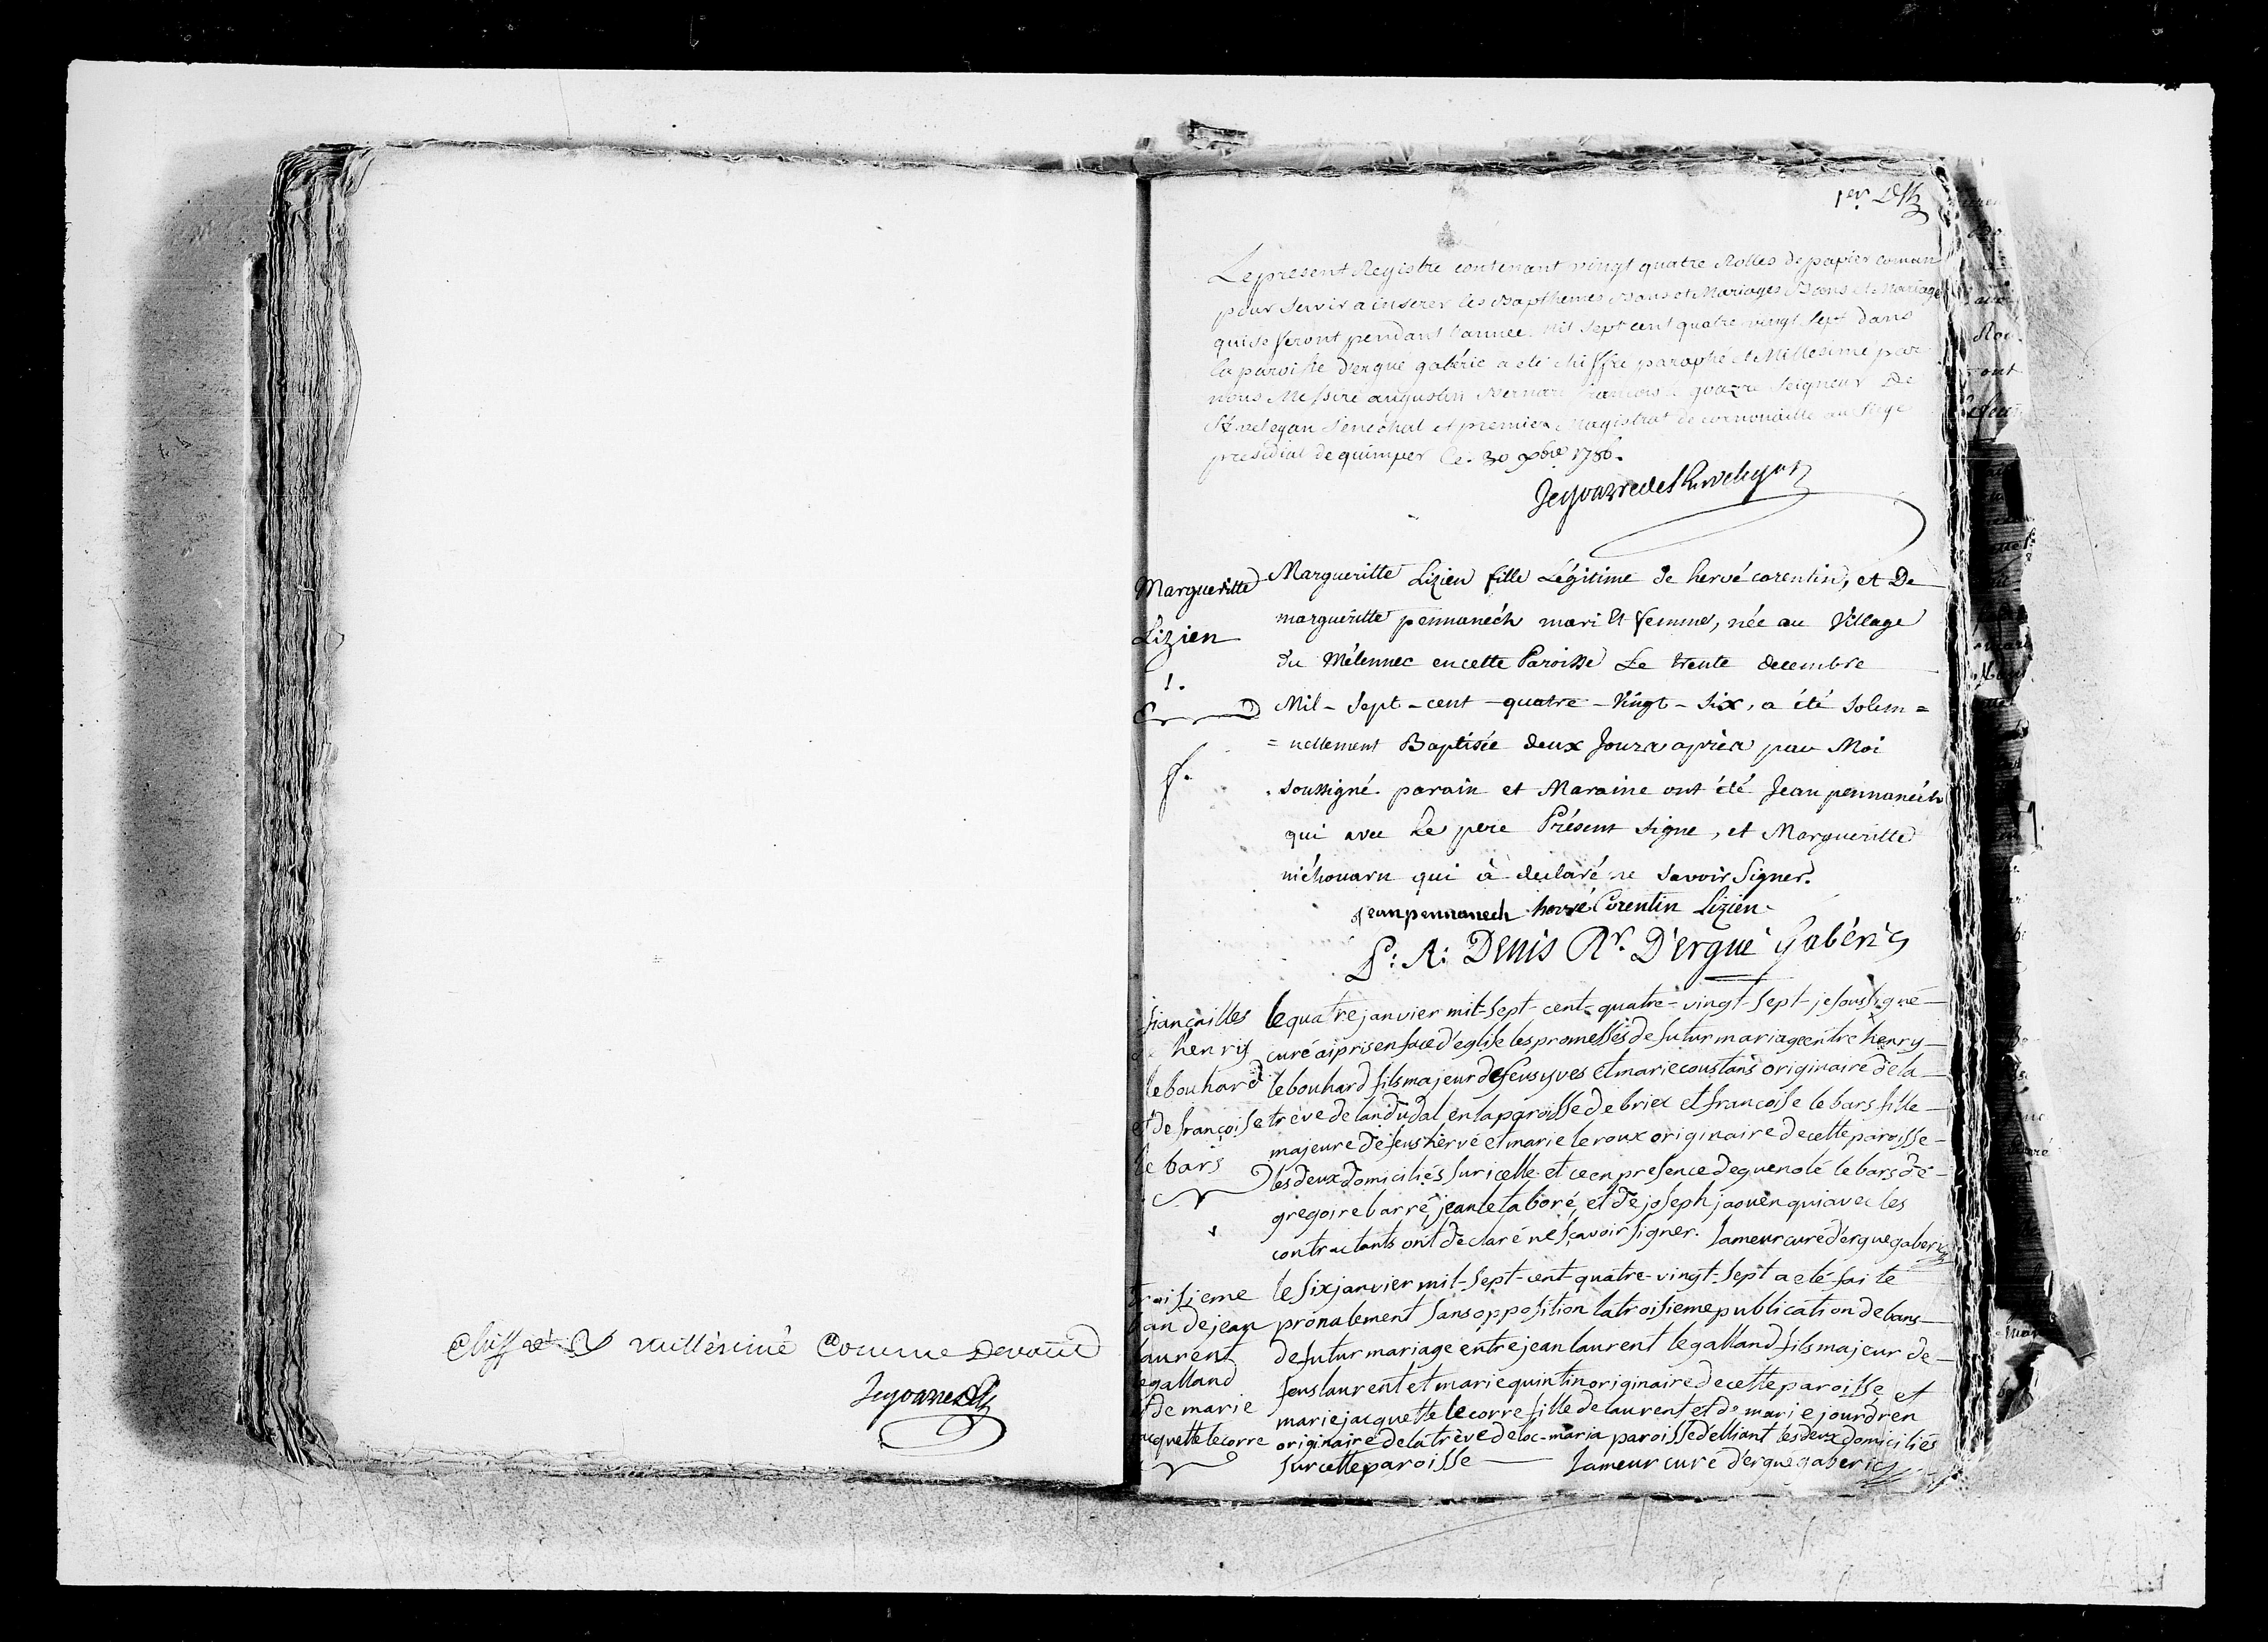 Chiffré & Millésimé Comme Devant
1er
Le present Registre contenant vingt quatre Rolles de papier comun
pour Servir a inserer les Bapthemes Bans et Mariages
qui se feront pendant l'année Mil Sept cent quatre vingt Sept dans
la paroisse d'ergué gabéric a été chiffré paraphé et Millesimé par
nous Messire augustin Bernard francois Le goazre Seigneur De
Kervelegan Senechal et premier Magistrat de cornouaille au Siege
presidial de quimper Ce. 30 xbre 1786.
Legoazre de Kervelegan
Margueritte
Lizien
1.
Margueritte Lizien fille Légitime de hervé corentin, et De
margueritte pennanéch mari et femme, née au Village
du Mélennec en cette Paroisse Le trente decembre
Mil - Sept - cent - quatre - Vingt - Six, a été Solem =
= nellement Baptisée deux Jours après par Moi
soussigné. parain et Maraine ont été Jean pennanéch
qui avec Le pere Présent signe, et Margueritte
niéhouarn qui à declaré ne Savoir Signer.
jean pennanech hervé Corentin Lizien
F: A: Denis Rr. D'ergué Gabéric
fiançailles
de henry
le bouhard
et de françoise
le bars
le quatre janvier mil-sept-cent-quatre-vingt-sept-je soussigné
curé ai pris en face d'eglise les promesses de futur mariage entre henry
le bouhard fils majeur de feus yves et marie coustans originaire de la
trève de landudal en la paroisse de briec et francoise le bars fille
majeure de feus hervé et marie le roux originaire de cette paroisse
les deux domiciliés sur icelle et ce en presence de guenolé le bars de
gregoire barré, jean le taboré, et de joseph jaouen qui avec les
contractants ont declaré ne sçavoir signer. Lameur curé d'ergue gaberic
troisieme
ban de jean
laurent
le galland
et de marie
jacquette le corre
le six janvier mil-sept-cent-quatre-vingt-sept a eté faite
pronalement sans opposition la troisieme publication de bans
de futur mariage entre jean laurent le galland fils majeur de
feus laurent et marie quintin originaire de cette paroisse et
marie jacquette le corre fille de laurent et de marie jourdren
originaire de la trève de loc-maria paroisse d'elliant les deux domiciliés
sur cette paroisse Lameur curé d'ergué gaberic